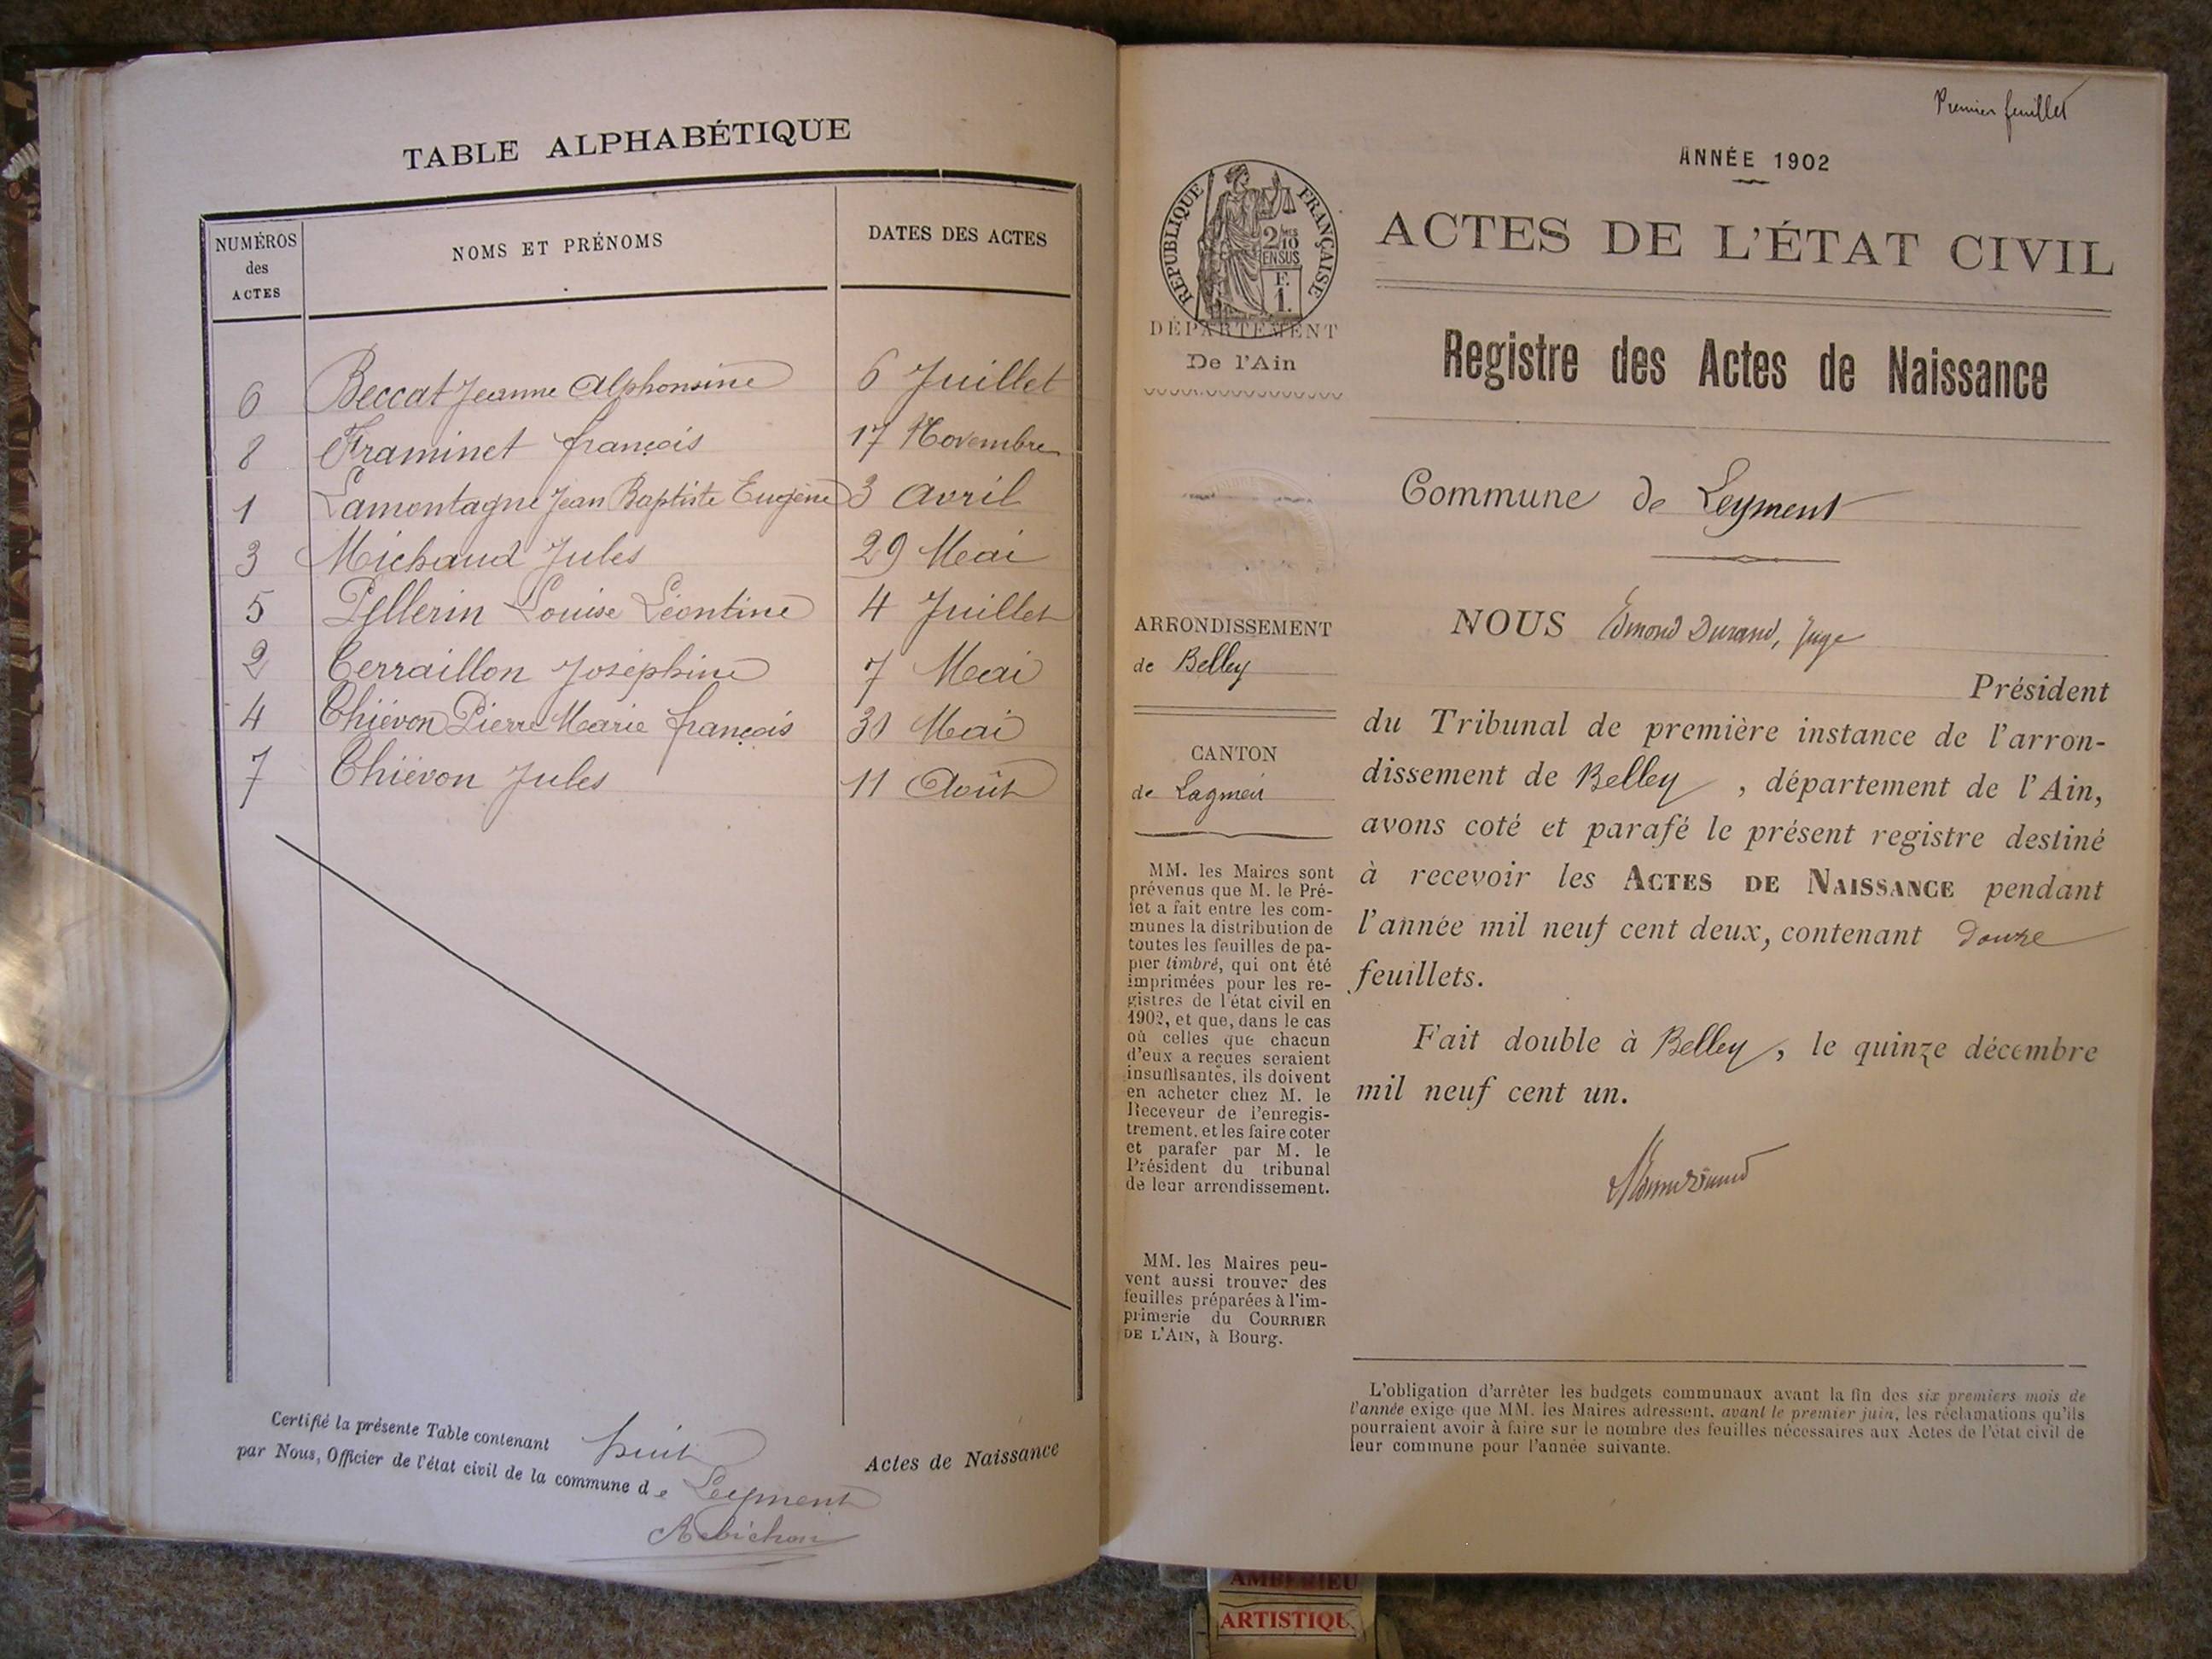 TABLE ALPHABÉTIQUE
NUMÉROS des ACTES
NOMS ET PRÉNOMS
DATES DES ACTES
6 Beccat Jeanne Alphonsine 6 Juillet
8 Framinet françois 17 Novembre
1 Lamontagne Jean Baptiste Eugène 3 Avril
3 Michaud Jules 29 Mai
5 Pellerin Louise Léontine 4 Juillet
2 Terraillon Joséphine 7 Mai
4 Thiévon Pierre Marie françois 30 Mai
7 Thiévon Jules 11 Août
Certifié la présente Table contenant huit Actes de Naissance
par Nous, Officier de l'état civil de la commune de Leyment
Premier feuillet
ANNÉE 1902
RÉPUBLIQUE FRANÇAISE
2/10 EN SUS
F. 1.
ACTES DE L'ÉTAT CIVIL
DÉPARTEMENT
De l'Ain
Registre des Actes de Naissance
Commune de Leyment
ARRONDISSEMENT
de Belley
CANTON
de Lagnieu
MM. les Maires sont
prévenus que M. le Pré-
fet a fait entre les com-
munes la distribution de
toutes les feuilles de pa-
pier timbré, qui ont été
imprimées pour les re-
gistres de l'état civil en
1902, et que, dans le cas
où celles que chacun
d'eux a reçues seraient
insuffisantes, ils doivent
en acheter chez M. le
Receveur de l'enregis-
trement, et les faire coter
et parafer par M. le
Président du tribunal
de leur arrondissement.
MM. les Maires peu-
vent aussi trouver des
feuilles préparées à l'im-
primerie du COURRIER
DE L'AIN, à Bourg.
NOUS Edmond Durand, Juge
Président
du Tribunal de première instance de l'arron-
dissement de Belley, département de l'Ain,
avons coté et parafé le présent registre destiné
à recevoir les ACTES DE NAISSANCE pendant
l'année mil neuf cent deux, contenant douze
feuillets.
Fait double à Belley, le quinze décembre
mil neuf cent un.
L'obligation d'arrêter les budgets communaux avant la fin des six premiers mois de
l'année exige que MM. les Maires adressent, avant le premier juin, les réclamations qu'ils
pourraient avoir à faire sur le nombre des feuilles nécessaires aux Actes de l'état civil de
leur commune pour l'année suivante.
AMBERIEU
ARTISTIQU